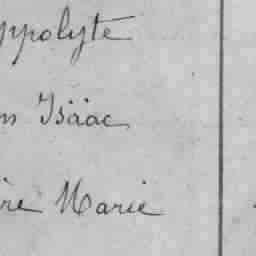 ppolyte
Isäac
re Marie